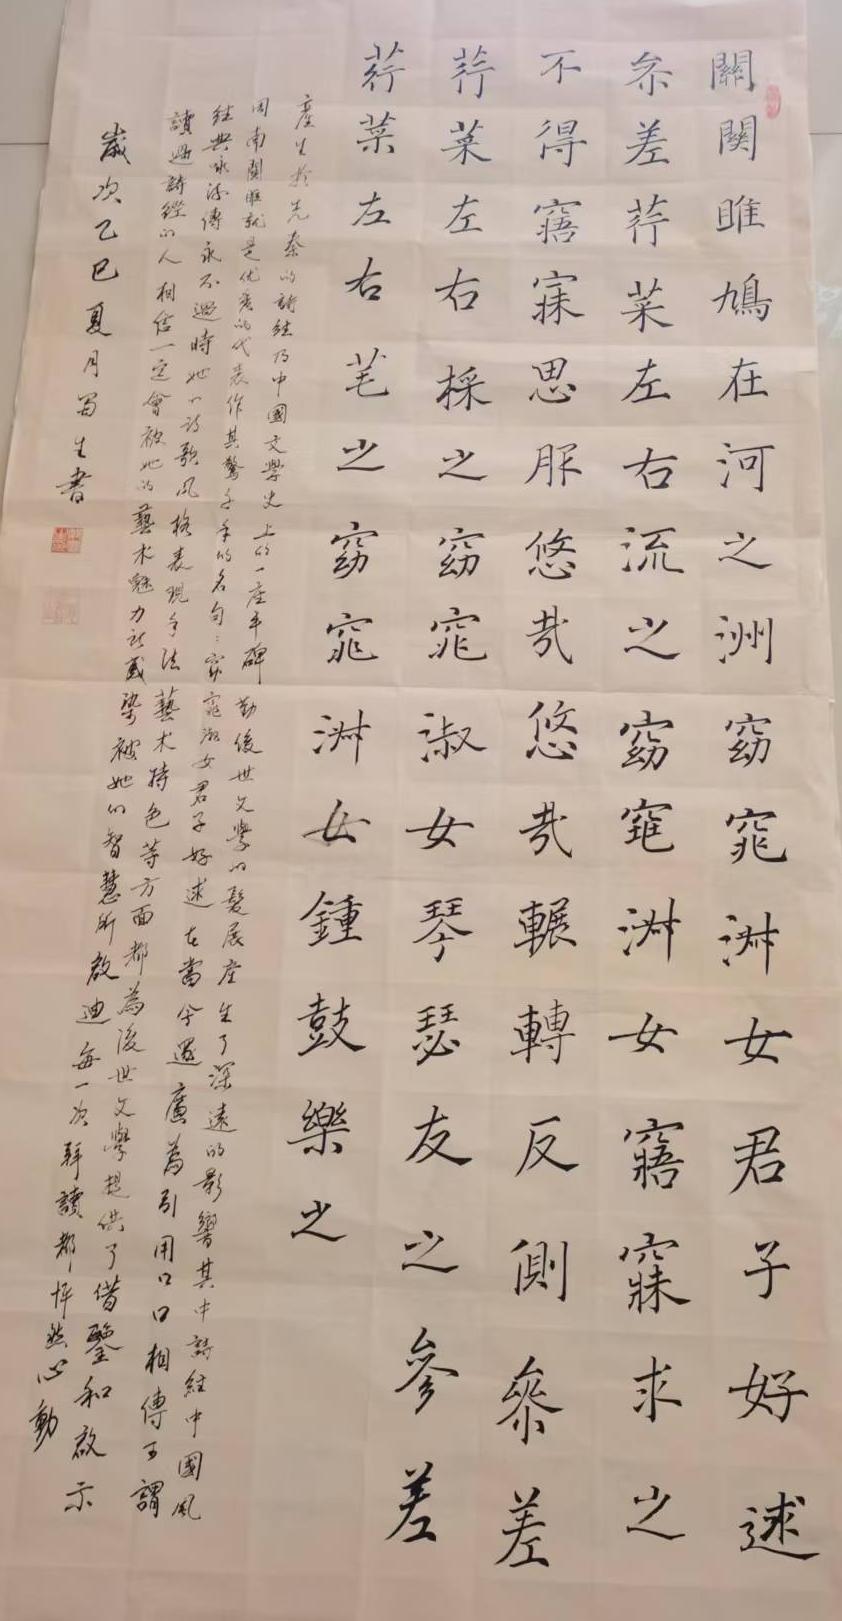 關關雎鳩在河之洲窈窕淋女君子好逑
參差荇菜左右流之窈窕淋女寤寐求之
不得寤寐思服悠哉悠哉輾轉反側參差
荇菜左右採之窈窕淑女琴瑟友之參差
荇菜左右芼之窈窕淋女鍾鼓樂之
產生於先秦的詩經乃中國文學史上的一座丰碑 勤後世文學的髮展産生了深遠的影響其中詩經中國風
周南關雎就是优秀的代表作其驚千年的名句:窈窕淑女君子好逑在當今還廣為引用口口相傳可謂
經典咏流傳永不過時她的詩歌風格表現手法藝术特色等方面都為後世文學提供了借鑒和啟示
讀過詩經的人相信一定會被她的藝术魅力所感染被她的智慧所啟迪每一次拜讀都怦然心動
歲次乙巳夏月蜀生書